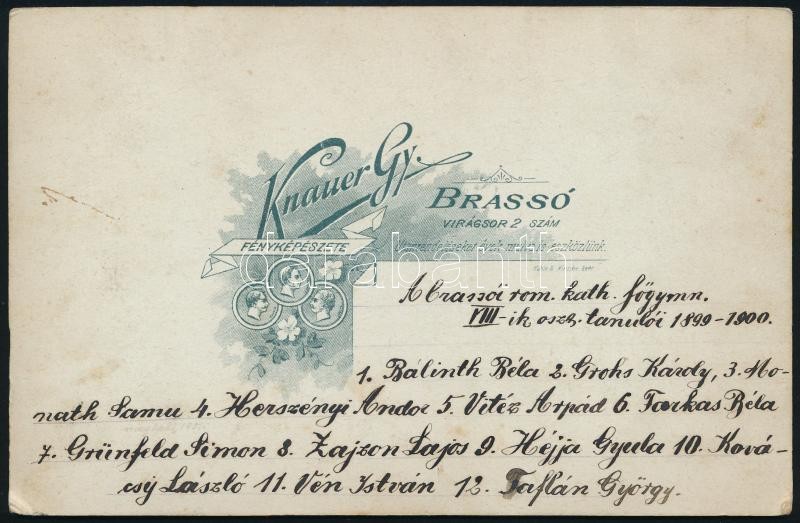 Knauer Gy.
FÉNYKÉPÉSZETE
BRASSÓ
VIRÁGSOR 2 SZÁM
Utánrendeléseket évek mulva is eszközlünk.
A brassói rom. kath. főgymn.
VIII-ik oszt. tanulói 1899-1900.
1. Bálinth Béla 2. Grohs Károly, 3. Mo-
nath Samu 4. Herszényi Andor 5. Vitéz Arpád 6. Farkas Béla
7. Grünfeld Simon 8. Zajzon Lajos 9. Héjja Gyula 10. Ková-
csy László 11. Vén István 12. Taflán György.
darabanth